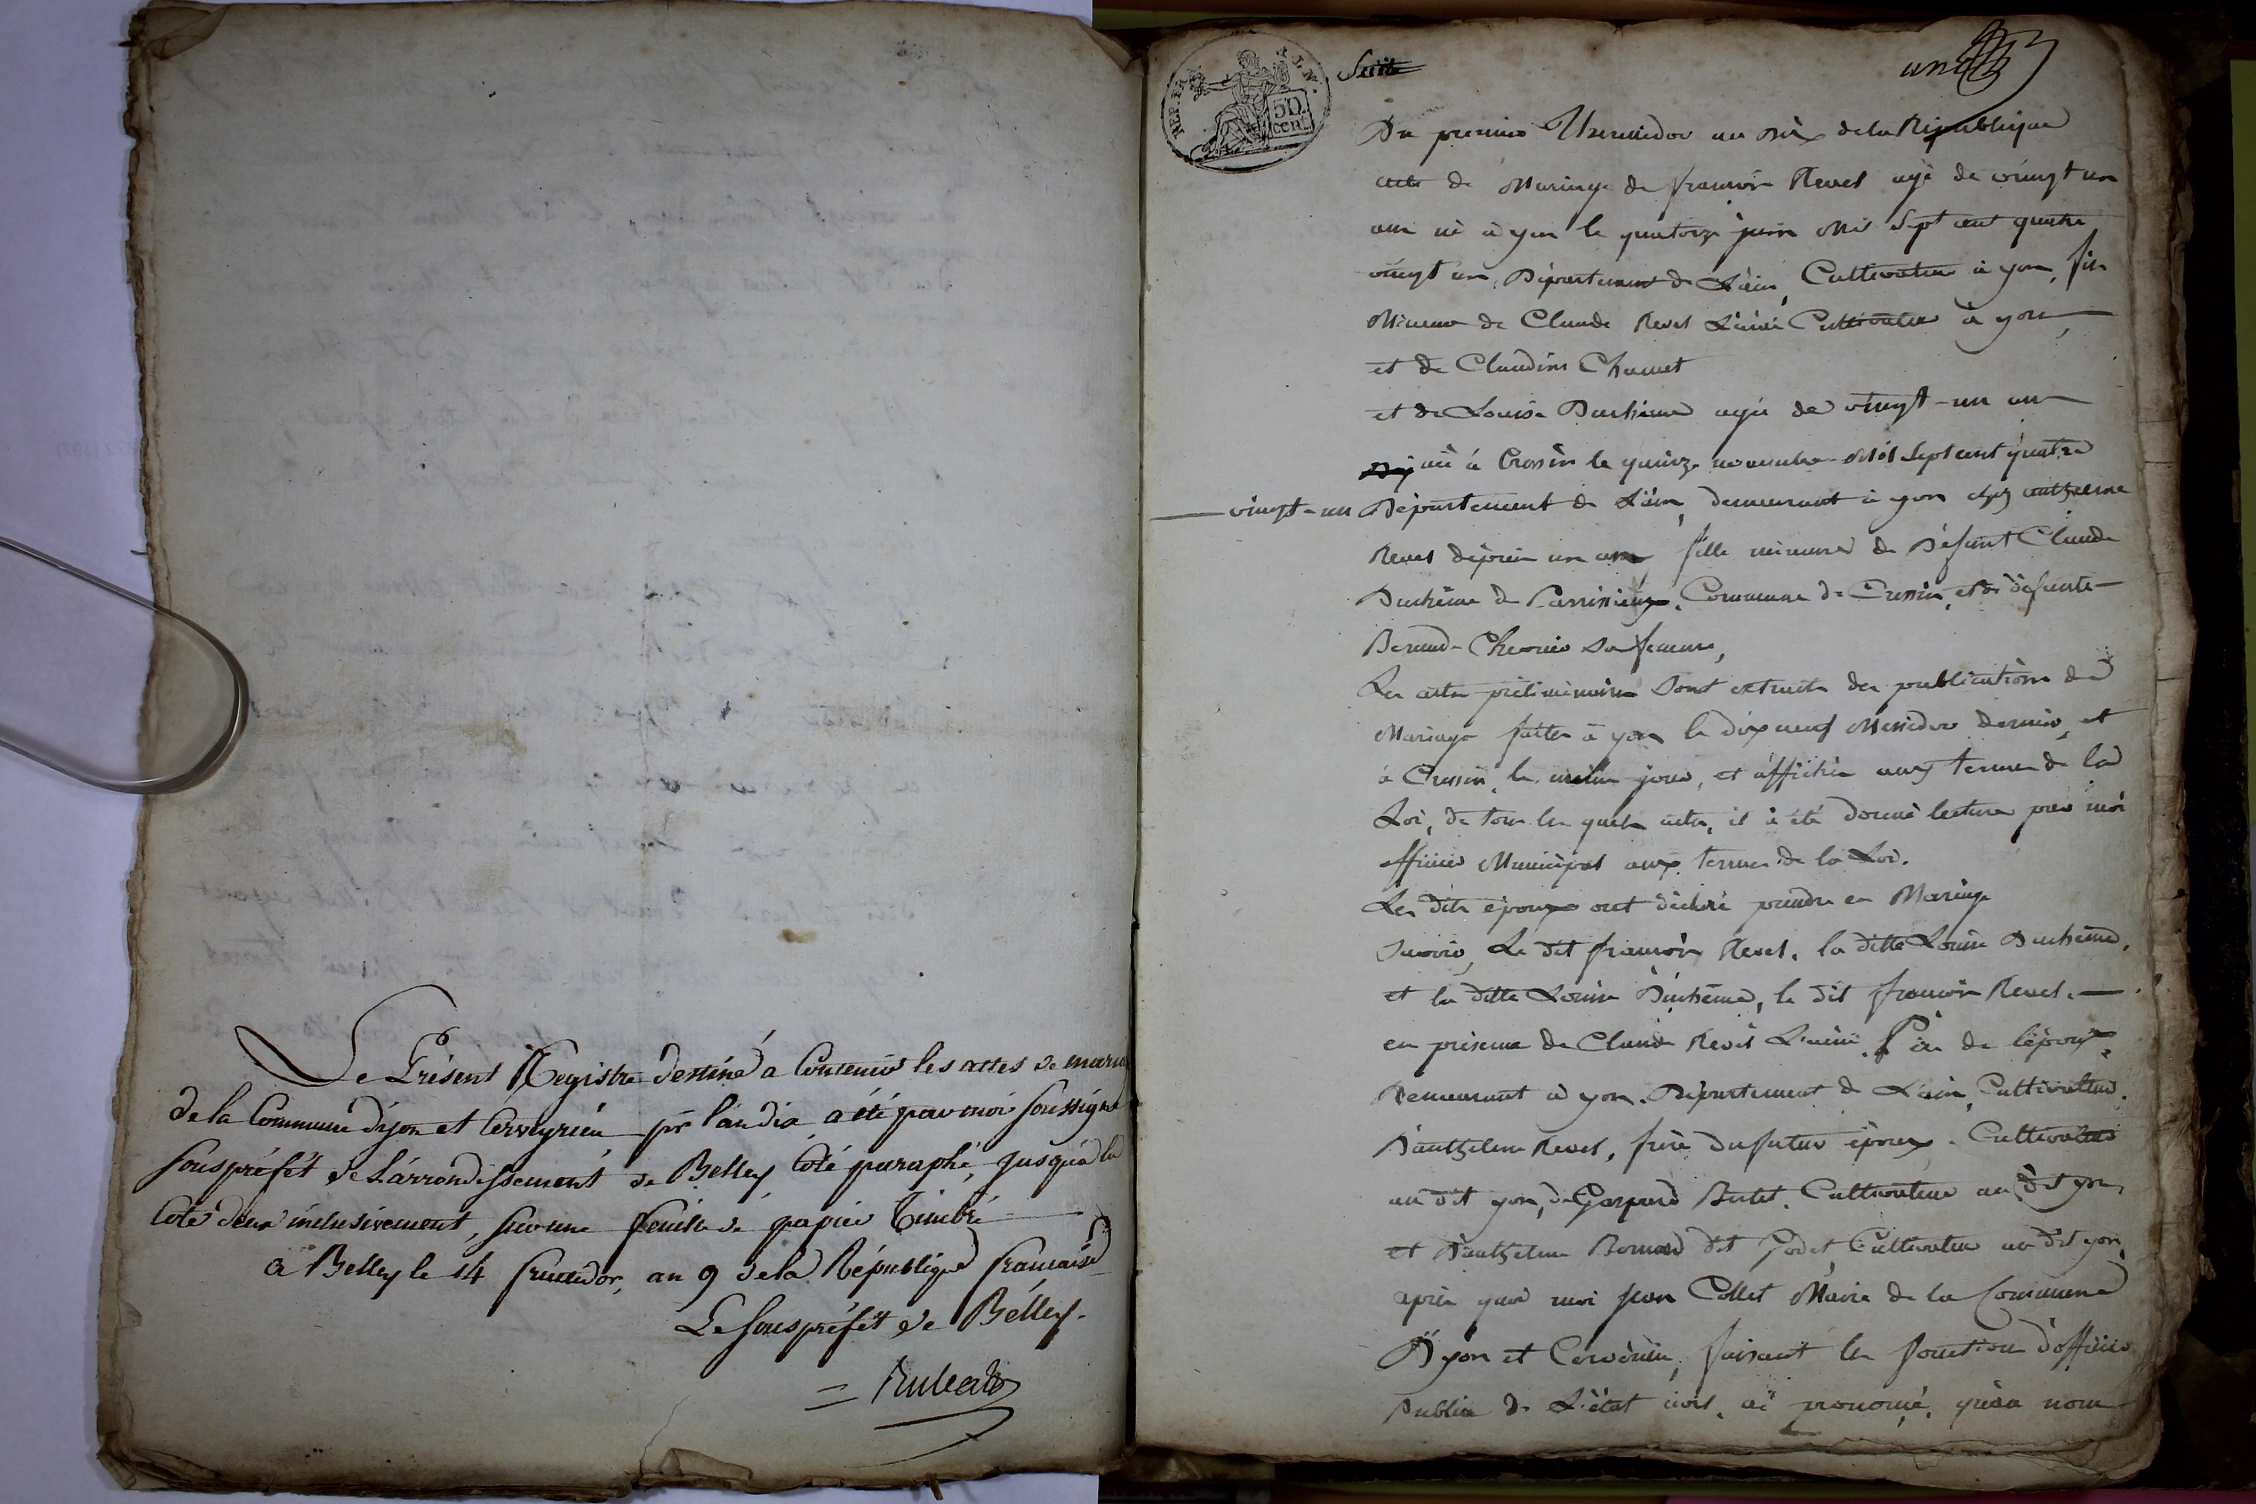 Le Présent Registre destiné a Contenir les actes de maria
de la Commune d'ijon et Cerveyrieu pr l'an dix a été par moi soussigné
souspréfét de L'arrondissement de Belley Coté paraphé, jusqu'a la
Cote deux inclusivement, sur une feuille de papier Timbré
a Belley le 14 fructidor, an 9 de la République francaise
Le souspréfét de Bélley.
REP. FRA.
50
cent.
Suite
un
Du premier Thermidor an dix de la République
acte de Mariage de françois Revel agé de vingt un
ans né à yon le quatorze juin Mil Sept cent quatre
vingt un, Département de L'ain, Cultivateur à yon, fils
Mineur de Claude Revel L'ainé Cultivateur à yon,
et de Claudine Chamet
et de Louise Duchêne agée de vingt-un ans
née à Cressin le quinze novembre Mil Sept cent quatre
vingt-un Département de L'ain, demeurant à yon chez anthelme
Revel dépuis un ans, fille mineure de Défunt Claude
Duchêne de Parissieux, Commune de Cressin, et de défunte
Chernio Sa femme,
Les actes préliminaires Sont extraits des publications de
Mariage faites à yon le dix neuf Messidor dernier, et
à Cressin, le même jour, et affichés aux termes de la
Loi, de tous les quels actes, il à été donné lecture par moi
officier Municipal aux termes de la Loi.
Les dits époux ont déclaré prendre en Mariage
Savoir, Le dit françois Revel, la ditte Louise Duchêne,
et la ditte Louise Duchêne, le dit françois Revel.
en présence de Claude Revel L'ainé, Père de l'époux,
Demeurant à yon, Département de L'ain, Cultivateur.
D'anthelme Revel, frère du futur époux, Cultivateur
au dit yon, de Gaspard Berlet, Cultivateur au dit yon,
et D'anthelme Bornard dit Godet, Cultivateur au dit yon,
après quoi moi Jean Collet Maire de la Commune
D'yon et Cerveirieu, faisant les fonction d'officier
Public de L'état civil, ai prononcé, qu'au nom